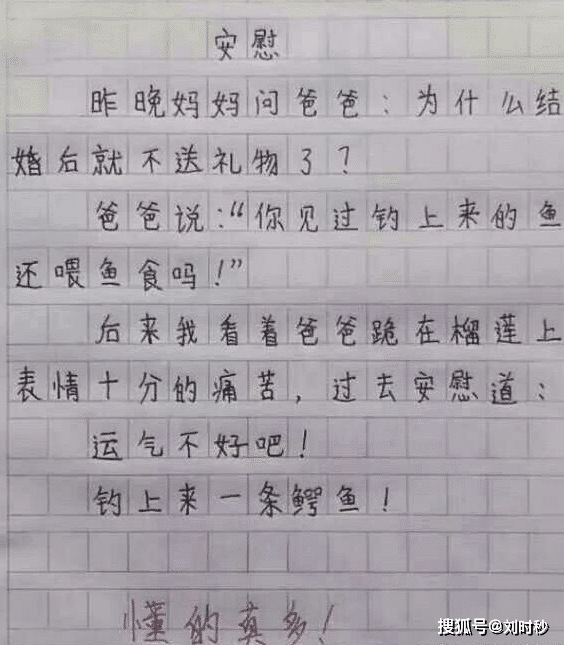 安慰
昨晚妈妈问爸爸：为什么结
婚后就不送礼物了？
爸爸说：“你见过钓上来的鱼
还喂鱼食吗！”
后来我看着爸爸跪在榴莲上
表情十分的痛苦，过去安慰道：
运气不好吧！
钓上来一条鳄鱼！
懂的真多！
搜狐号@刘时秒